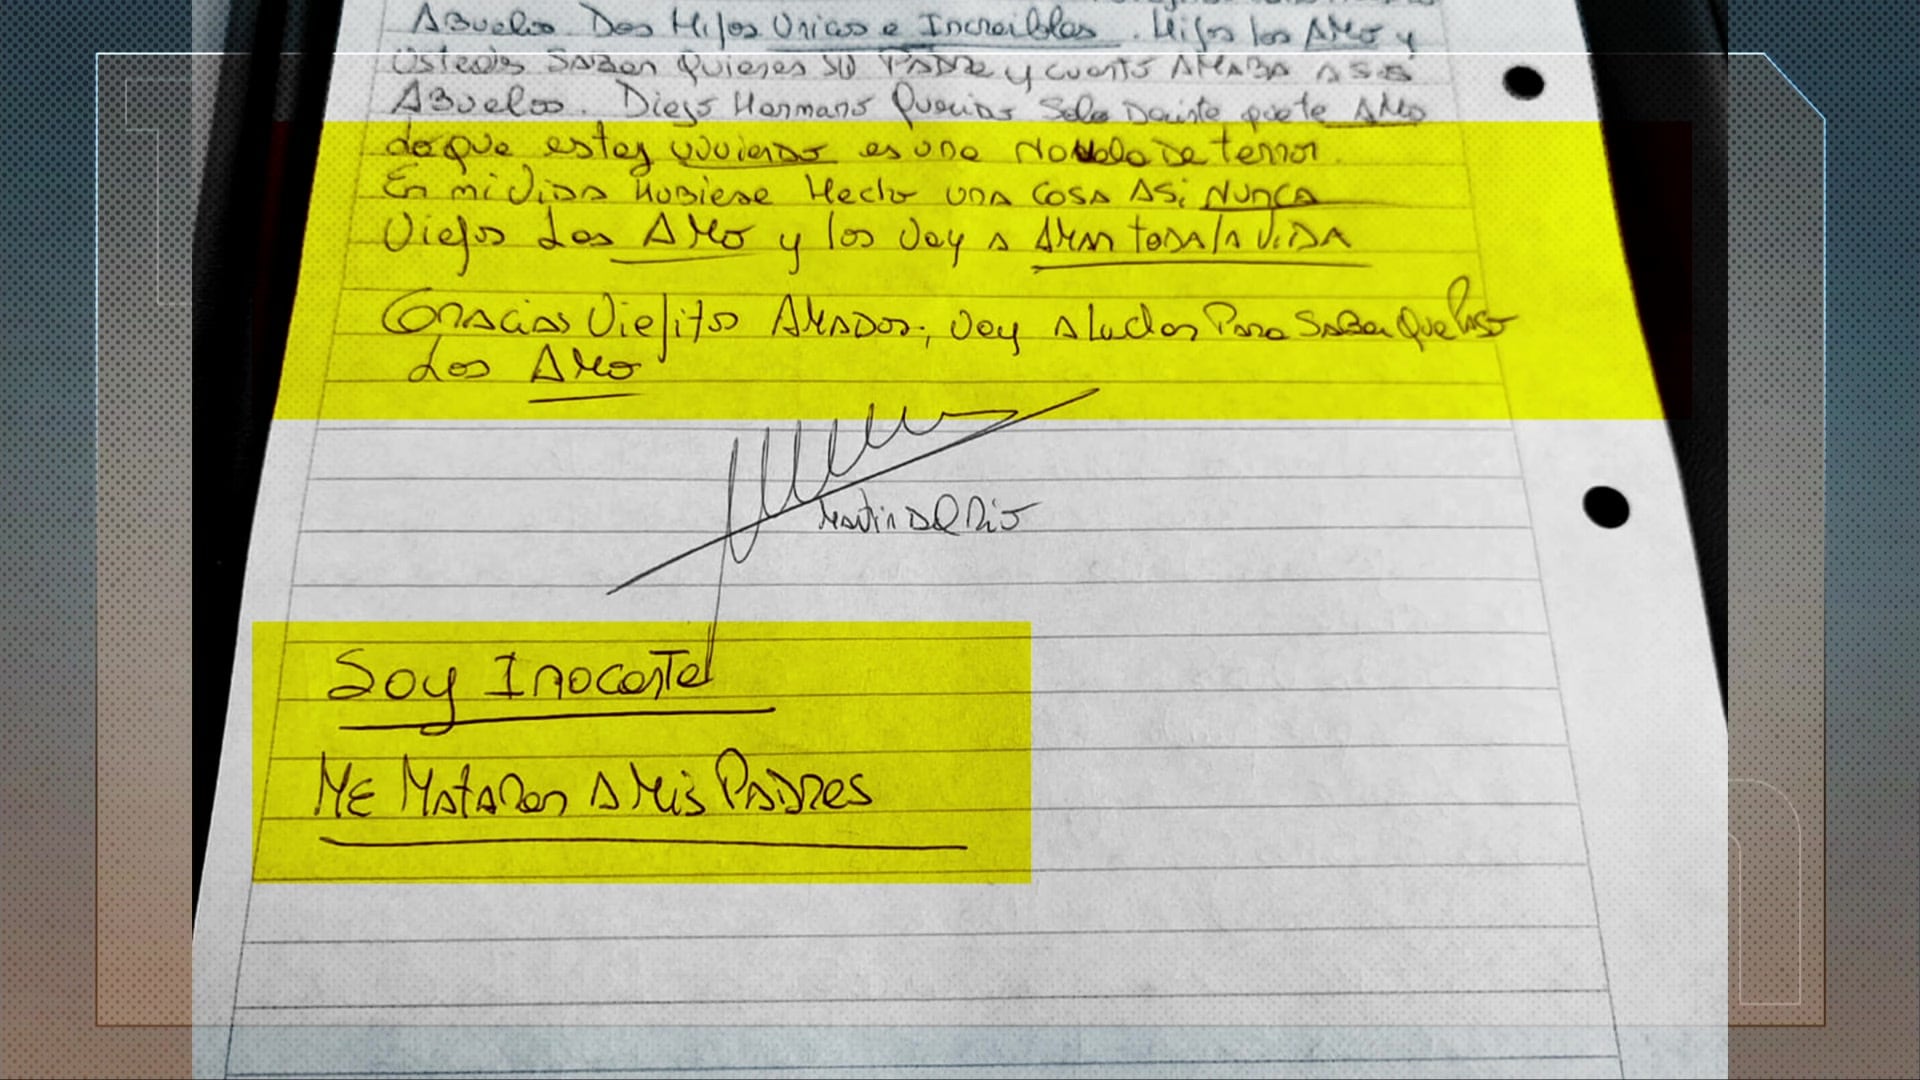 Abuelos. Dos Hijos Unicos e Increibles. Hijos los AMO y
Ustedes Saben Quienes SU PADRE y cuanto AMABA A SUS
Abuelos. Diego Hermano Querido Solo Decirte que te AMO
Lo que estoy viviendo es una Novela De terror.
En mi Vida Hubiese Hecho una cosa ASi NUNCA
Viejos Los AMO y los Voy a AMAR toda la ViDA
Gracias Viejitos AMADOS, Voy a luchar Para Saber Que Paso
Los AMO
Martin del Rio
Soy Inocente
ME MATARON A Mis PADRES